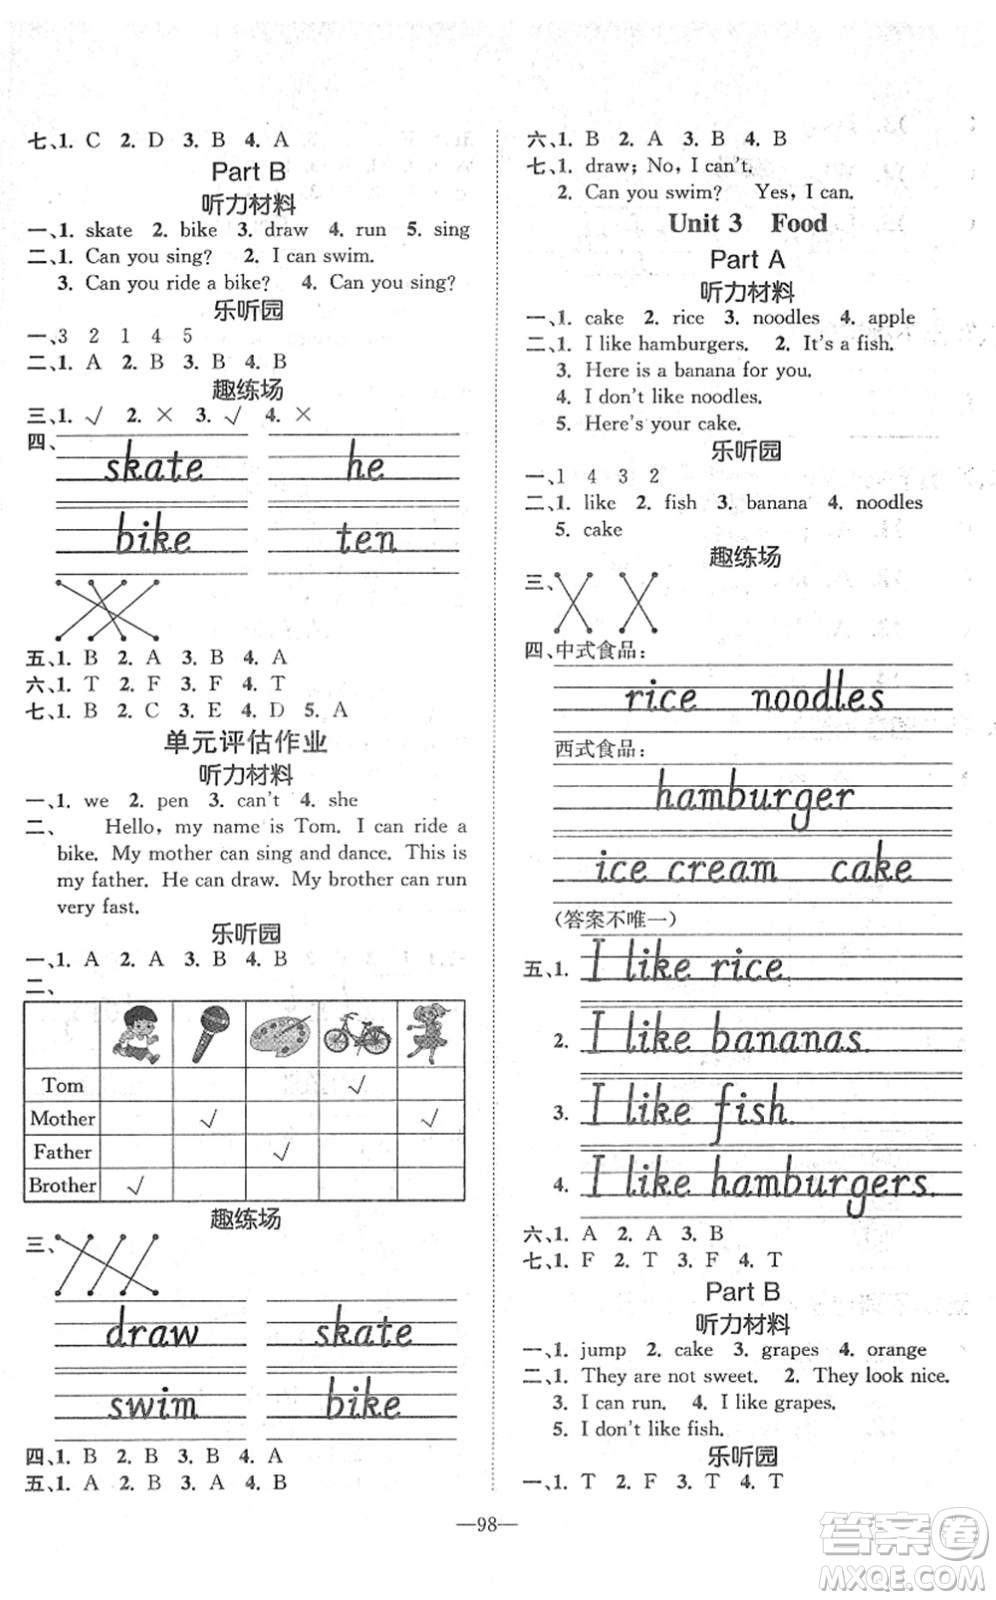 七、1. C 2. D 3. B 4. A
Part B
听力材料
一、1. skate 2. bike 3. draw 4. run 5. sing
二、1. Can you sing? 2. I can swim.
3. Can you ride a bike? 4. Can you sing?
乐听园
一、3 2 1 4 5
二、1. A 2. B 3. B 4. B
趣练场
三、1. √ 2. × 3. √ 4. ×
四、
skate he
bike ten
五、1. B 2. A 3. B 4. A
六、1. T 2. F 3. F 4. T
七、1. B 2. C 3. E 4. D 5. A
单元评估作业
听力材料
一、1. we 2. pen 3. can't 4. she
二、 Hello, my name is Tom. I can ride a
bike. My mother can sing and dance. This is
my father. He can draw. My brother can run
very fast.
乐听园
一、1. A 2. A 3. B 4. B
二、
Tom √
Mother √ √
Father √
Brother √
趣练场
三、
draw skate
swim bike
四、1. B 2. B 3. B 4. A
五、1. A 2. B 3. A 4. B
六、1. B 2. A 3. B 4. B
七、1. draw; No, I can't.
2. Can you swim? Yes, I can.
Unit 3 Food
Part A
听力材料
一、1. cake 2. rice 3. noodles 4. apple
二、1. I like hamburgers. 2. It's a fish.
3. Here is a banana for you.
4. I don't like noodles.
5. Here's your cake.
乐听园
一、1 4 3 2
二、1. like 2. fish 3. banana 4. noodles
5. cake
趣练场
三、
四、中式食品:
rice noodles
西式食品:
hamburger
ice cream cake
(答案不唯一)
五、1. I like rice.
2. I like bananas.
3. I like fish.
4. I like hamburgers.
六、1. A 2. A 3. B
七、1. F 2. T 3. F 4. T
Part B
听力材料
一、1. jump 2. cake 3. grapes 4. orange
二、1. They are not sweet. 2. They look nice.
3. I can run. 4. I like grapes.
5. I don't like fish.
乐听园
一、1. T 2. F 3. T 4. T
—98—
答案圈
MXQE.COM